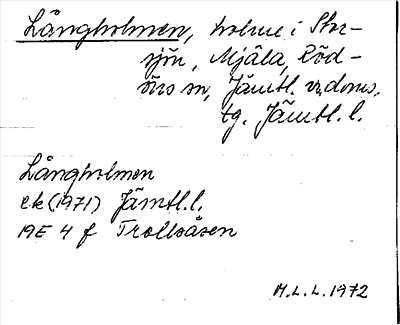 Långholmen, holme i Stor-
sjön, Mjåla, Röd-
öns sn, Jämtl. v. doms.
tg. Jämtl. l.
Långholmen
ek (1971) Jämtl. l.
19E 4 f Trollsåsen
M.L.L. 1972